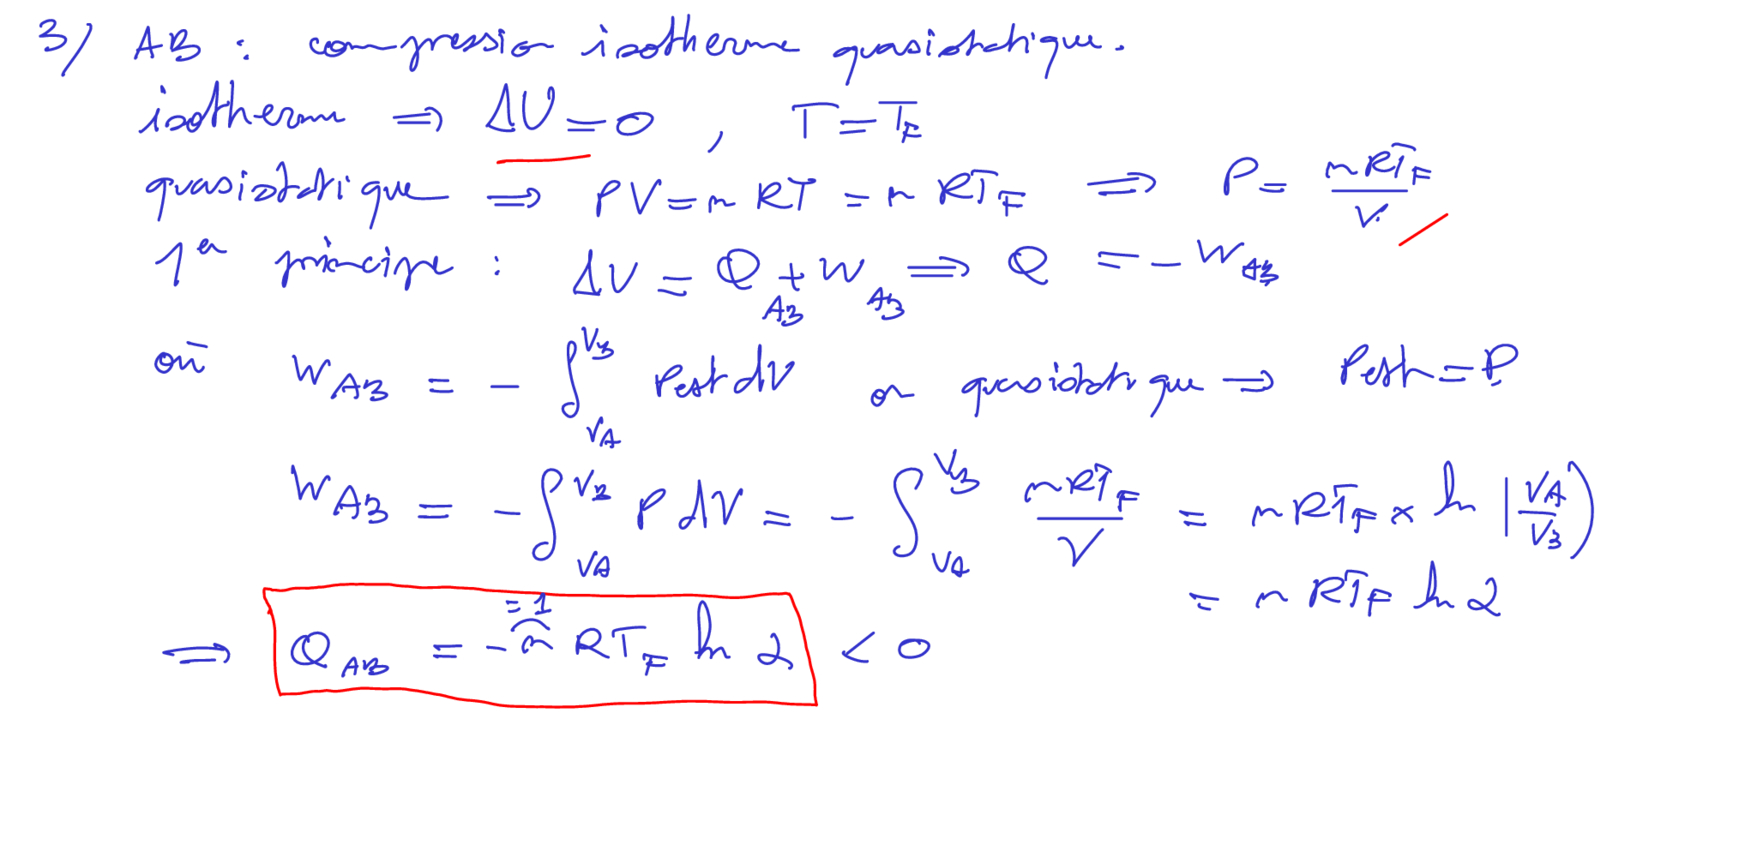 3) AB : compression isotherme quasistatique.
isotherme ⇒ ΔU = 0 , T = T_F
quasistatique ⇒ PV = nRT = nRT_F ⇒ P = nRT_F / V
1er principe : ΔU = Q_AB + W_AB ⇒ Q = -W_AB
où W_AB = - ∫_{V_A}^{V_B} Pext dV or quasistatique ⇒ Pext = P
W_AB = - ∫_{V_A}^{V_B} P dV = - ∫_{V_A}^{V_B} nRT_F / V = nRT_F × ln |V_A / V_B)
= nRT_F ln 2
= 1
⇒ Q_AB = - n RT_F ln 2 < 0